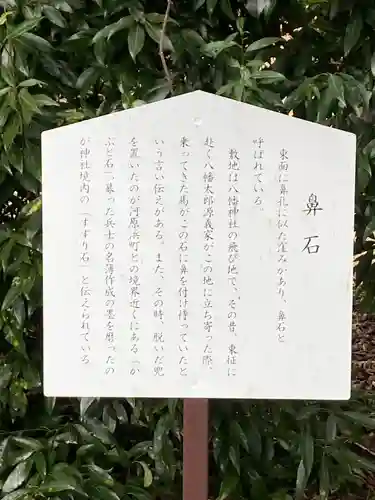 鼻石
東面に鼻孔に似た窪みがあり、鼻石と
呼ばれている。
敷地は八幡神社の飛び地で、その昔、東征に
赴く八幡太郎源義家がこの地に立ち寄った際、
乗ってきた馬がこの石に鼻を付け待っていたと
いう言い伝えがある。また、その時、脱いだ兜
を置いたのが河原浜町との境界近くにある「か
ぶと石」、募った兵士の名簿作成の墨を磨ったの
が神社境内の「すずり石」と伝えられている